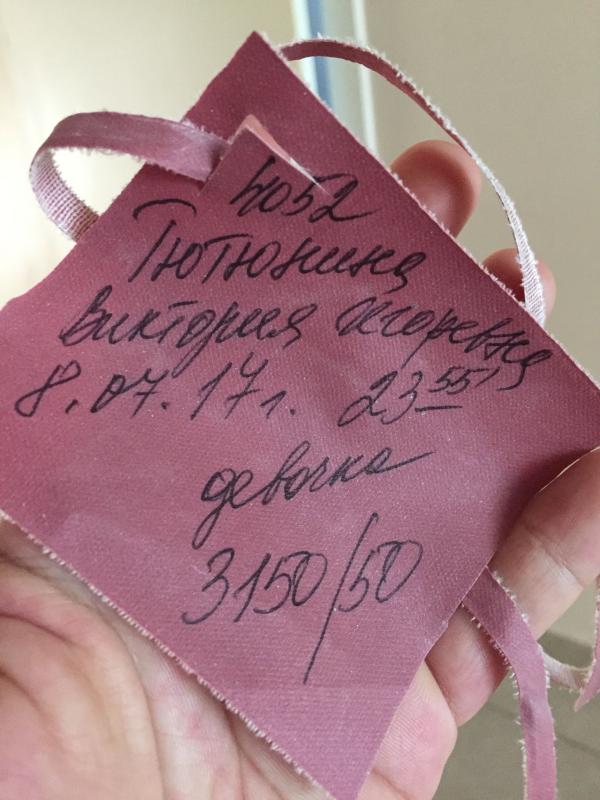 4052
Тютюнина
Виктория Игоревна
8.07.17г. 23 55'
девочка
3150/50